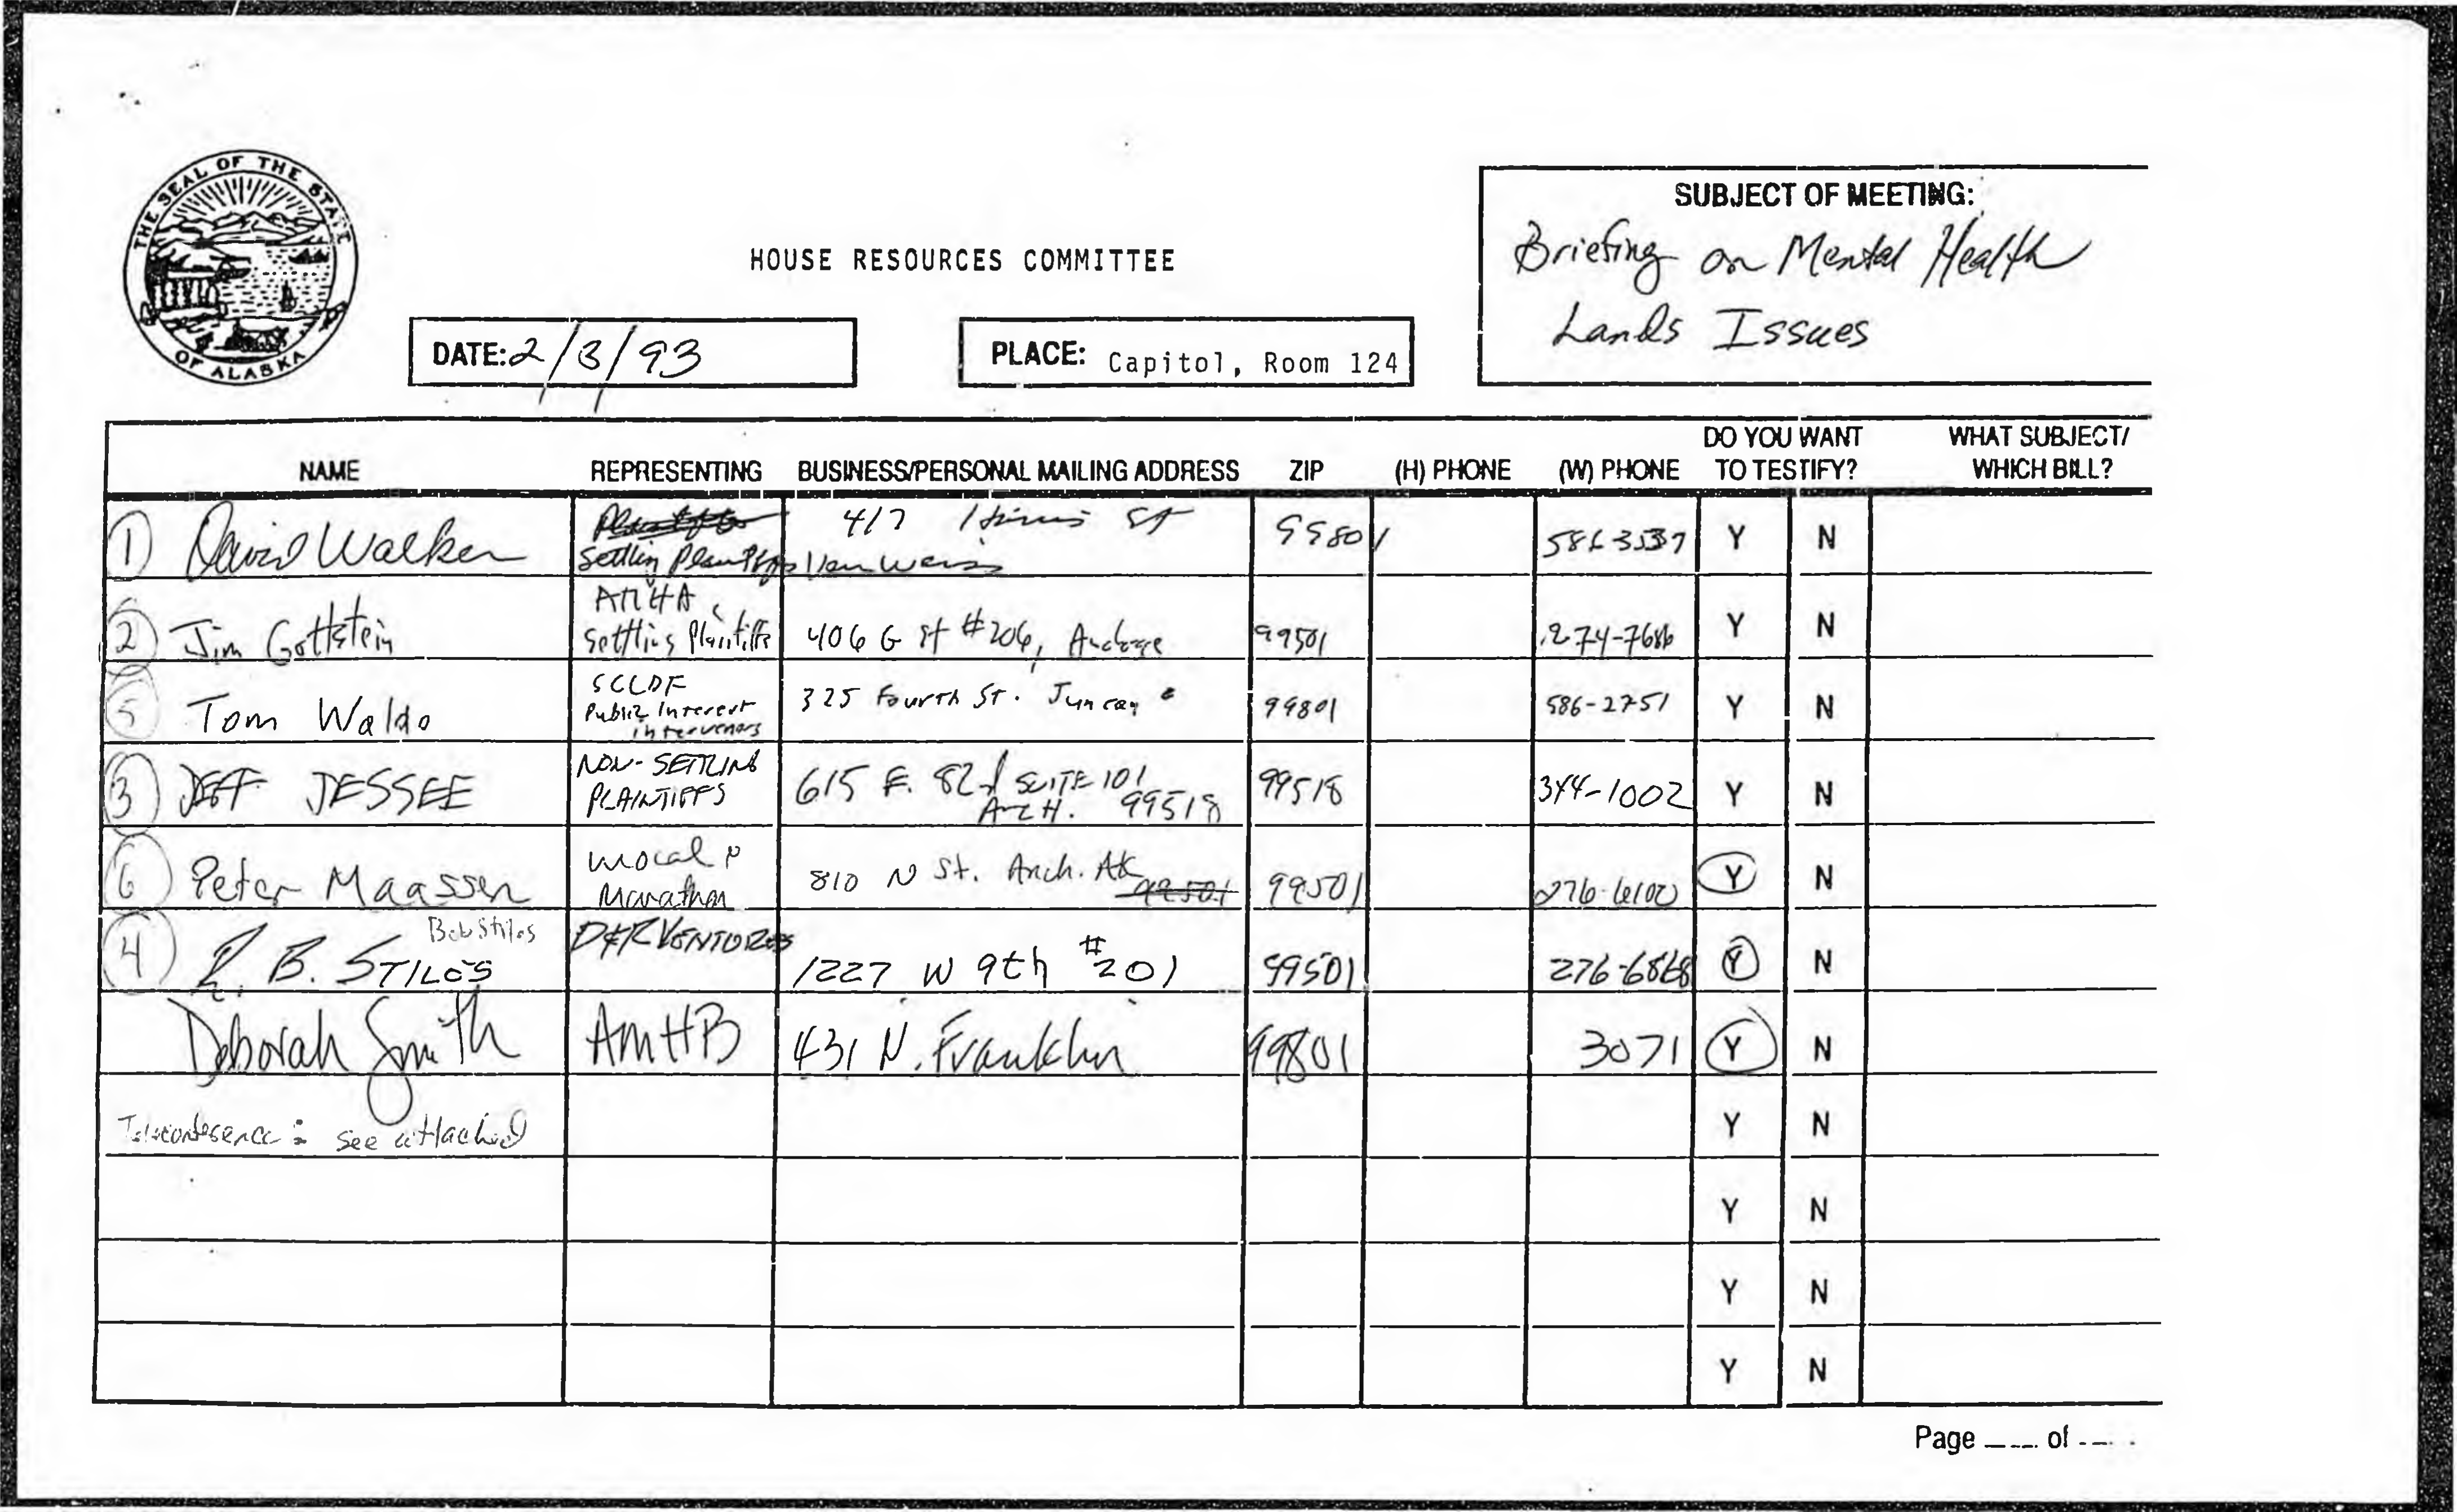 THE SEAL OF THE STATE OF ALASKA
HOUSE RESOURCES COMMITTEE
SUBJECT OF MEETING:
Briefing on Mental Health
Lands Issues
DATE: 2/3/93
PLACE: Capitol, Room 124
NAME REPRESENTING BUSINESS/PERSONAL MAILING ADDRESS ZIP (H) PHONE (W) PHONE DO YOU WANT TO TESTIFY? WHAT SUBJECT/ WHICH BILL?
1 David Walker Settling Plaintiffs 417 St 99801 Y N
2 Jim Gottstein AMHA Settling Plaintiffs 406 G St #206, Anchorage 99501 274-7686 Y N
5 Tom Waldo SCLDF Public Interest Intervenors 325 Fourth St. Juneau 99801 586-2751 Y N
3 JEFF JESSEE NON-SETTLING PLAINTIFFS 615 E. 82nd SUITE 101 ANCH. 99518 99518 344-1002 Y N
6 Peter Maassen Unocal & Marathon 810 N St. Anch. AK 99501 99501 276-6100 Y N
4 R. B. STILES Bob Stiles D&R VENTURES 1227 W 9th #201 99501 276-6868 Y N
Deborah Smith AMHB 431 N. Franklin 99801 3071 Y N
Teleconference: see attached Y N
Y N
Y N
Y N
Page ____ of ____